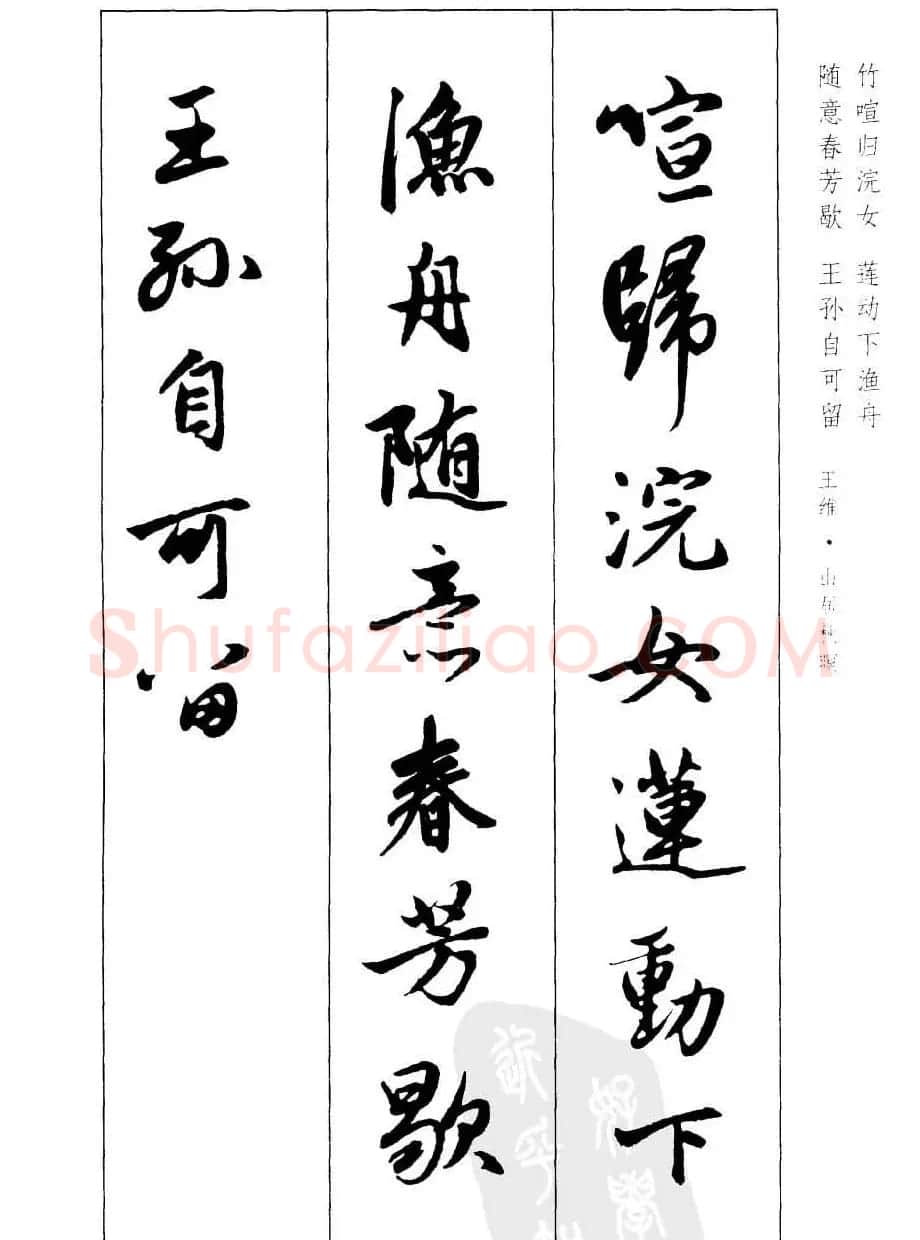 竹喧归浣女 莲动下渔舟
随意春芳歇 王孙自可留 王维·山居秋暝
喧歸浣女蓮動下
漁舟随意春芳歇
王孫自可留
Shufaziliao.COM